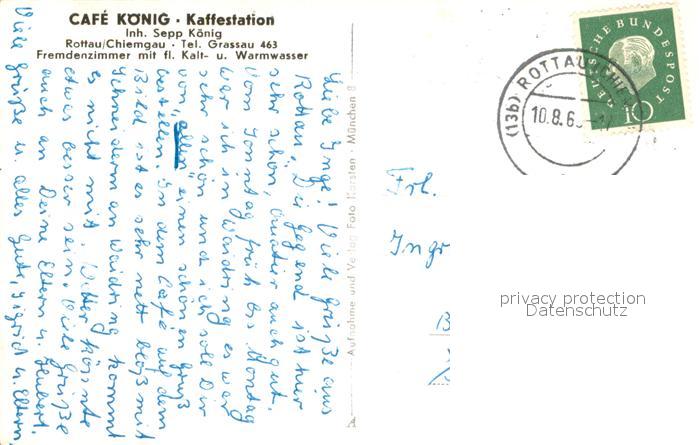 CAFÉ KÖNIG · Kaffestation
Inh. Sepp König
Rottau/Chiemgau · Tel. Grassau 463
Fremdenzimmer mit fl. Kalt- u. Warmwasser
Liebe Inge! Viele Grüße aus
Rottau. Die Gegend ist hier
sehr schön, Quatier auch gut.
Vom Sonntag früh bis Montag
war ich in Waidring es war
sehr schön und ich soll Dir
von „allen" einen schönen Gruß
bestellen. In dem Café auf dem
Bild ist es sehr nett bloß mit
Schneidern an Waidring kommt
es nicht mit. Wetter könnte
etwas besser sein. Viele Grüße
auch an Deine Eltern u. Hubert.
Viele Grüße u. alles Gute, Sigrid u. Eltern
Aufnahme und Verlag Foto Karsten · München 8
DEUTSCHE BUNDESPOST
10
(13b) ROTTAU
10.8.6
Frl.
Ingr
privacy protection
Datenschutz